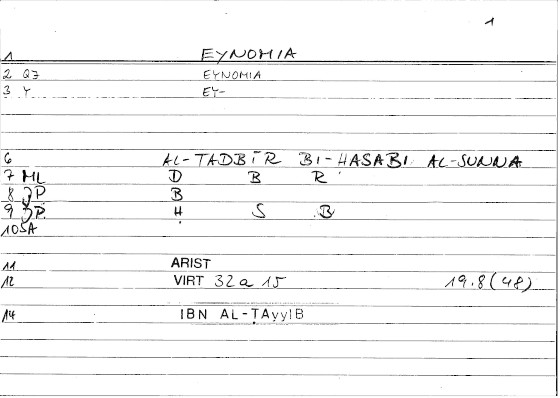 1
1 EYNOMIA
2 Q7 EYNOMIA
3 Y EY-
6 AL-TADBĪR BI-ḤASABI AL-SUNNA
7 ML D B R
8 JP B
9 JP Ḥ S B
10 SA
11 ARIST
12 VIRT 32a 15 19.8(48)
14 IBN AL-ṬAyyIB